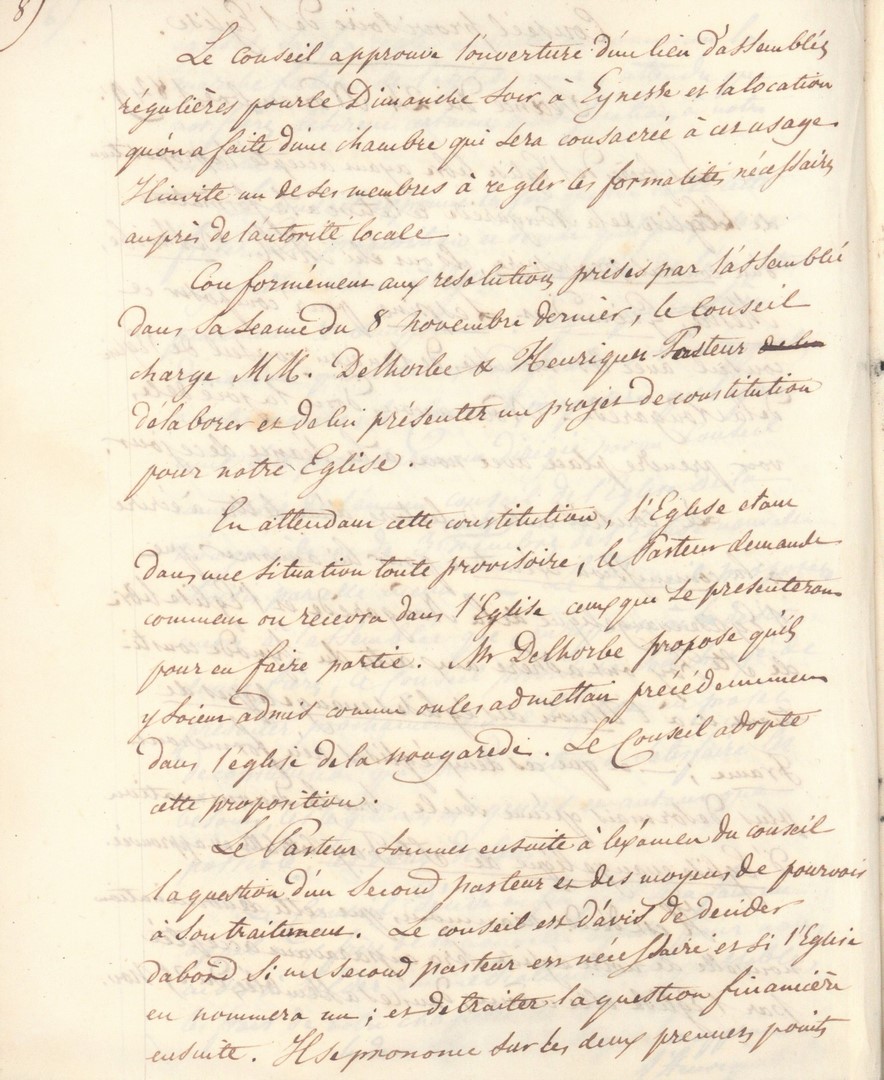 8)
Le Conseil approuve l'ouverture d'un lieu d'assemblées
régulières pour le Dimanche soir à Eynesse et la location
qu'on a faite d'une chambre qui sera consacrée à cet usage.
Il invite un de ses membres à régler les formalités nécessaires
auprès de l'autorité locale
Conformément aux resolutions prises par l'assemblée
dans sa séance du 8 novembre dernier, le Conseil
charge M.M. Delhorbe & Henriquet Pasteur
d'élaborer et de lui présenter un projet de constitution
pour notre Eglise.
En attendant cette constitution, l'Eglise étant
dans une situation toute provisoire, le Pasteur demande
comment on recevra dans l'Eglise ceux qui se présenteront
pour en faire partie. Mr Delhorbe propose qu'ils
y soient admis comme on les admettait précédemment
dans l'église de la nougarède. Le Conseil adopte
cette proposition.
Le Pasteur soumet ensuite à l'éxamen du conseil
la question d'un second pasteur et des moyens de pourvoir
à son traitement. Le conseil est d'avis de decider
d'abord si un second pasteur est nécessaire et si l'Eglise
en nommera un; et de traiter la question financière
ensuite. Il se prononce sur les deux premiers points